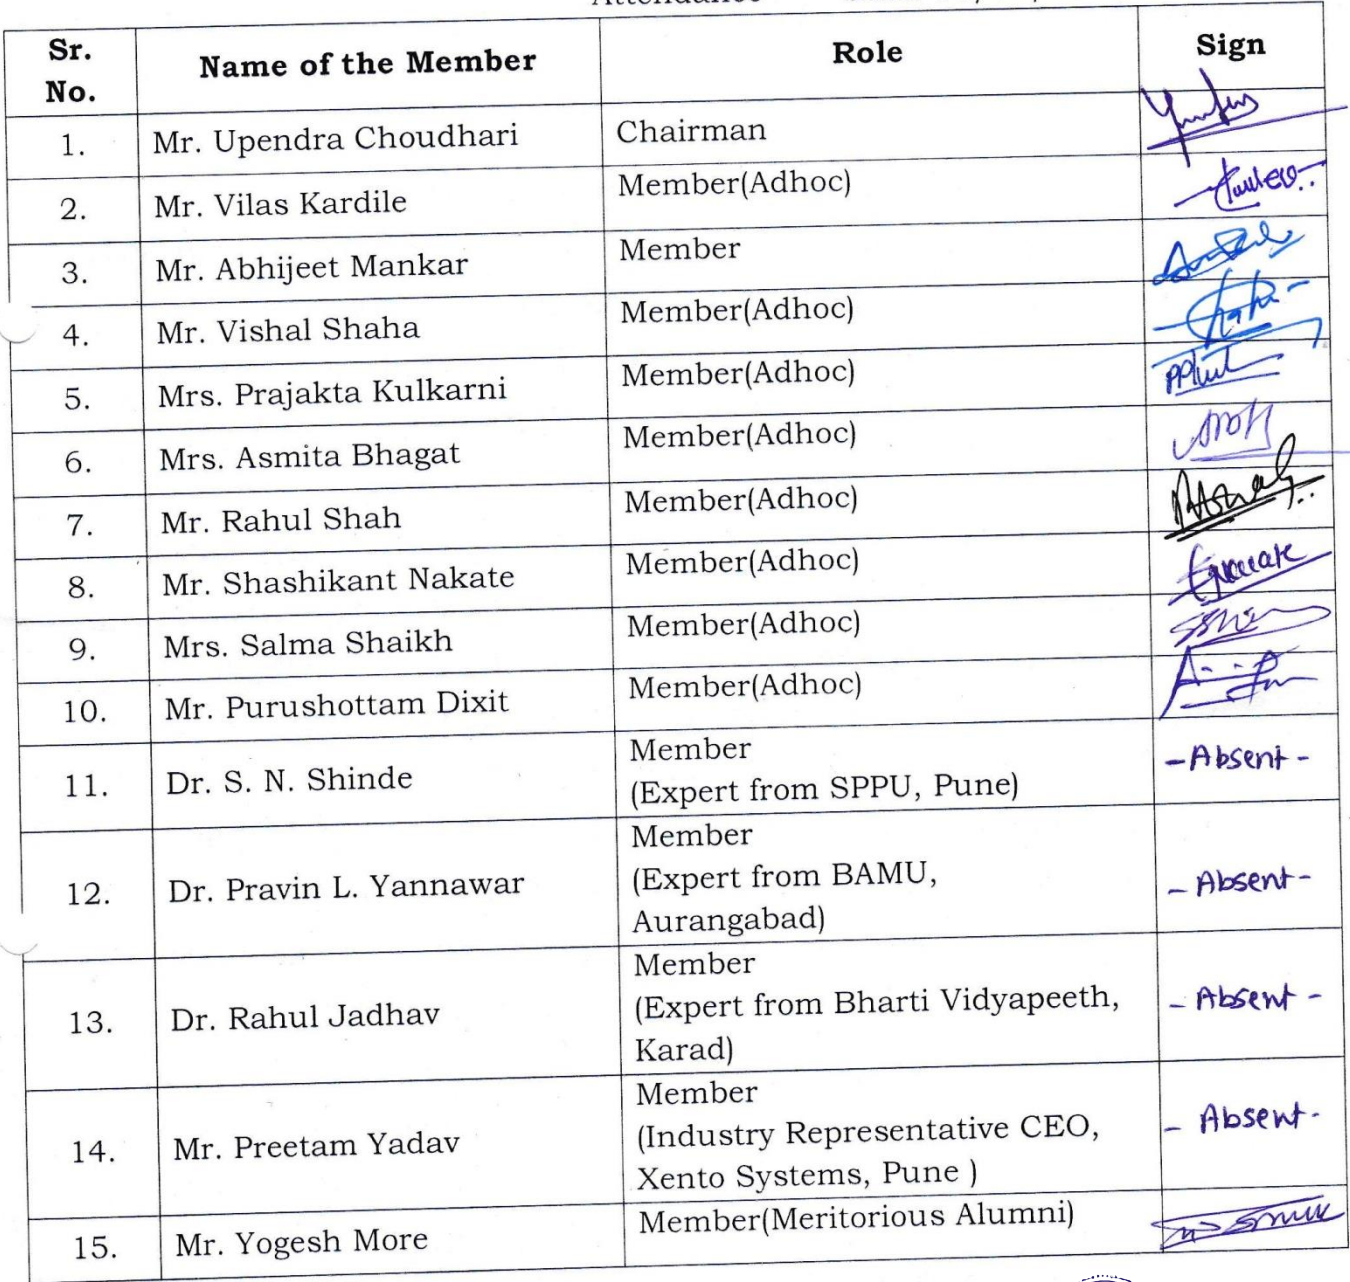 Attendance
Sr. No. Name of the Member Role Sign
1. Mr. Upendra Choudhari Chairman
2. Mr. Vilas Kardile Member(Adhoc)
3. Mr. Abhijeet Mankar Member
4. Mr. Vishal Shaha Member(Adhoc)
5. Mrs. Prajakta Kulkarni Member(Adhoc)
6. Mrs. Asmita Bhagat Member(Adhoc)
7. Mr. Rahul Shah Member(Adhoc)
8. Mr. Shashikant Nakate Member(Adhoc)
9. Mrs. Salma Shaikh Member(Adhoc)
10. Mr. Purushottam Dixit Member(Adhoc)
11. Dr. S. N. Shinde Member
(Expert from SPPU, Pune) -Absent-
12. Dr. Pravin L. Yannawar Member
(Expert from BAMU,
Aurangabad) - Absent-
13. Dr. Rahul Jadhav Member
(Expert from Bharti Vidyapeeth,
Karad) - Absent -
14. Mr. Preetam Yadav Member
(Industry Representative CEO,
Xento Systems, Pune ) - Absent-
15. Mr. Yogesh More Member(Meritorious Alumni)